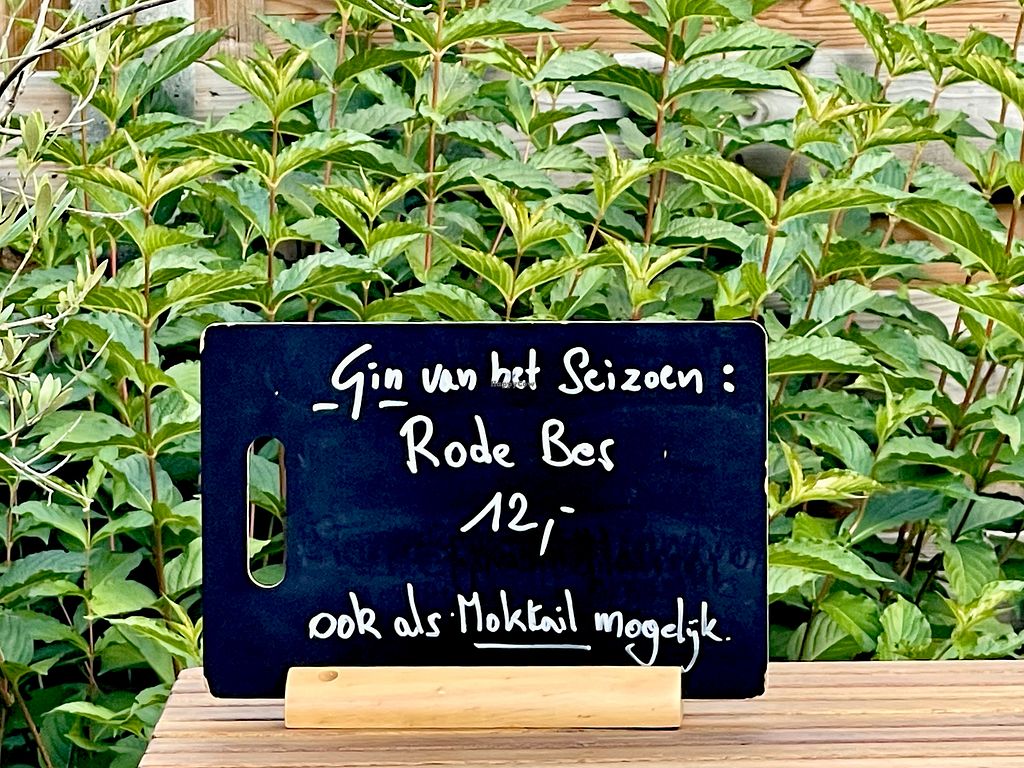 Gin van het Seizoen :
Rode Bes
12,-
ook als Moktail mogelijk.